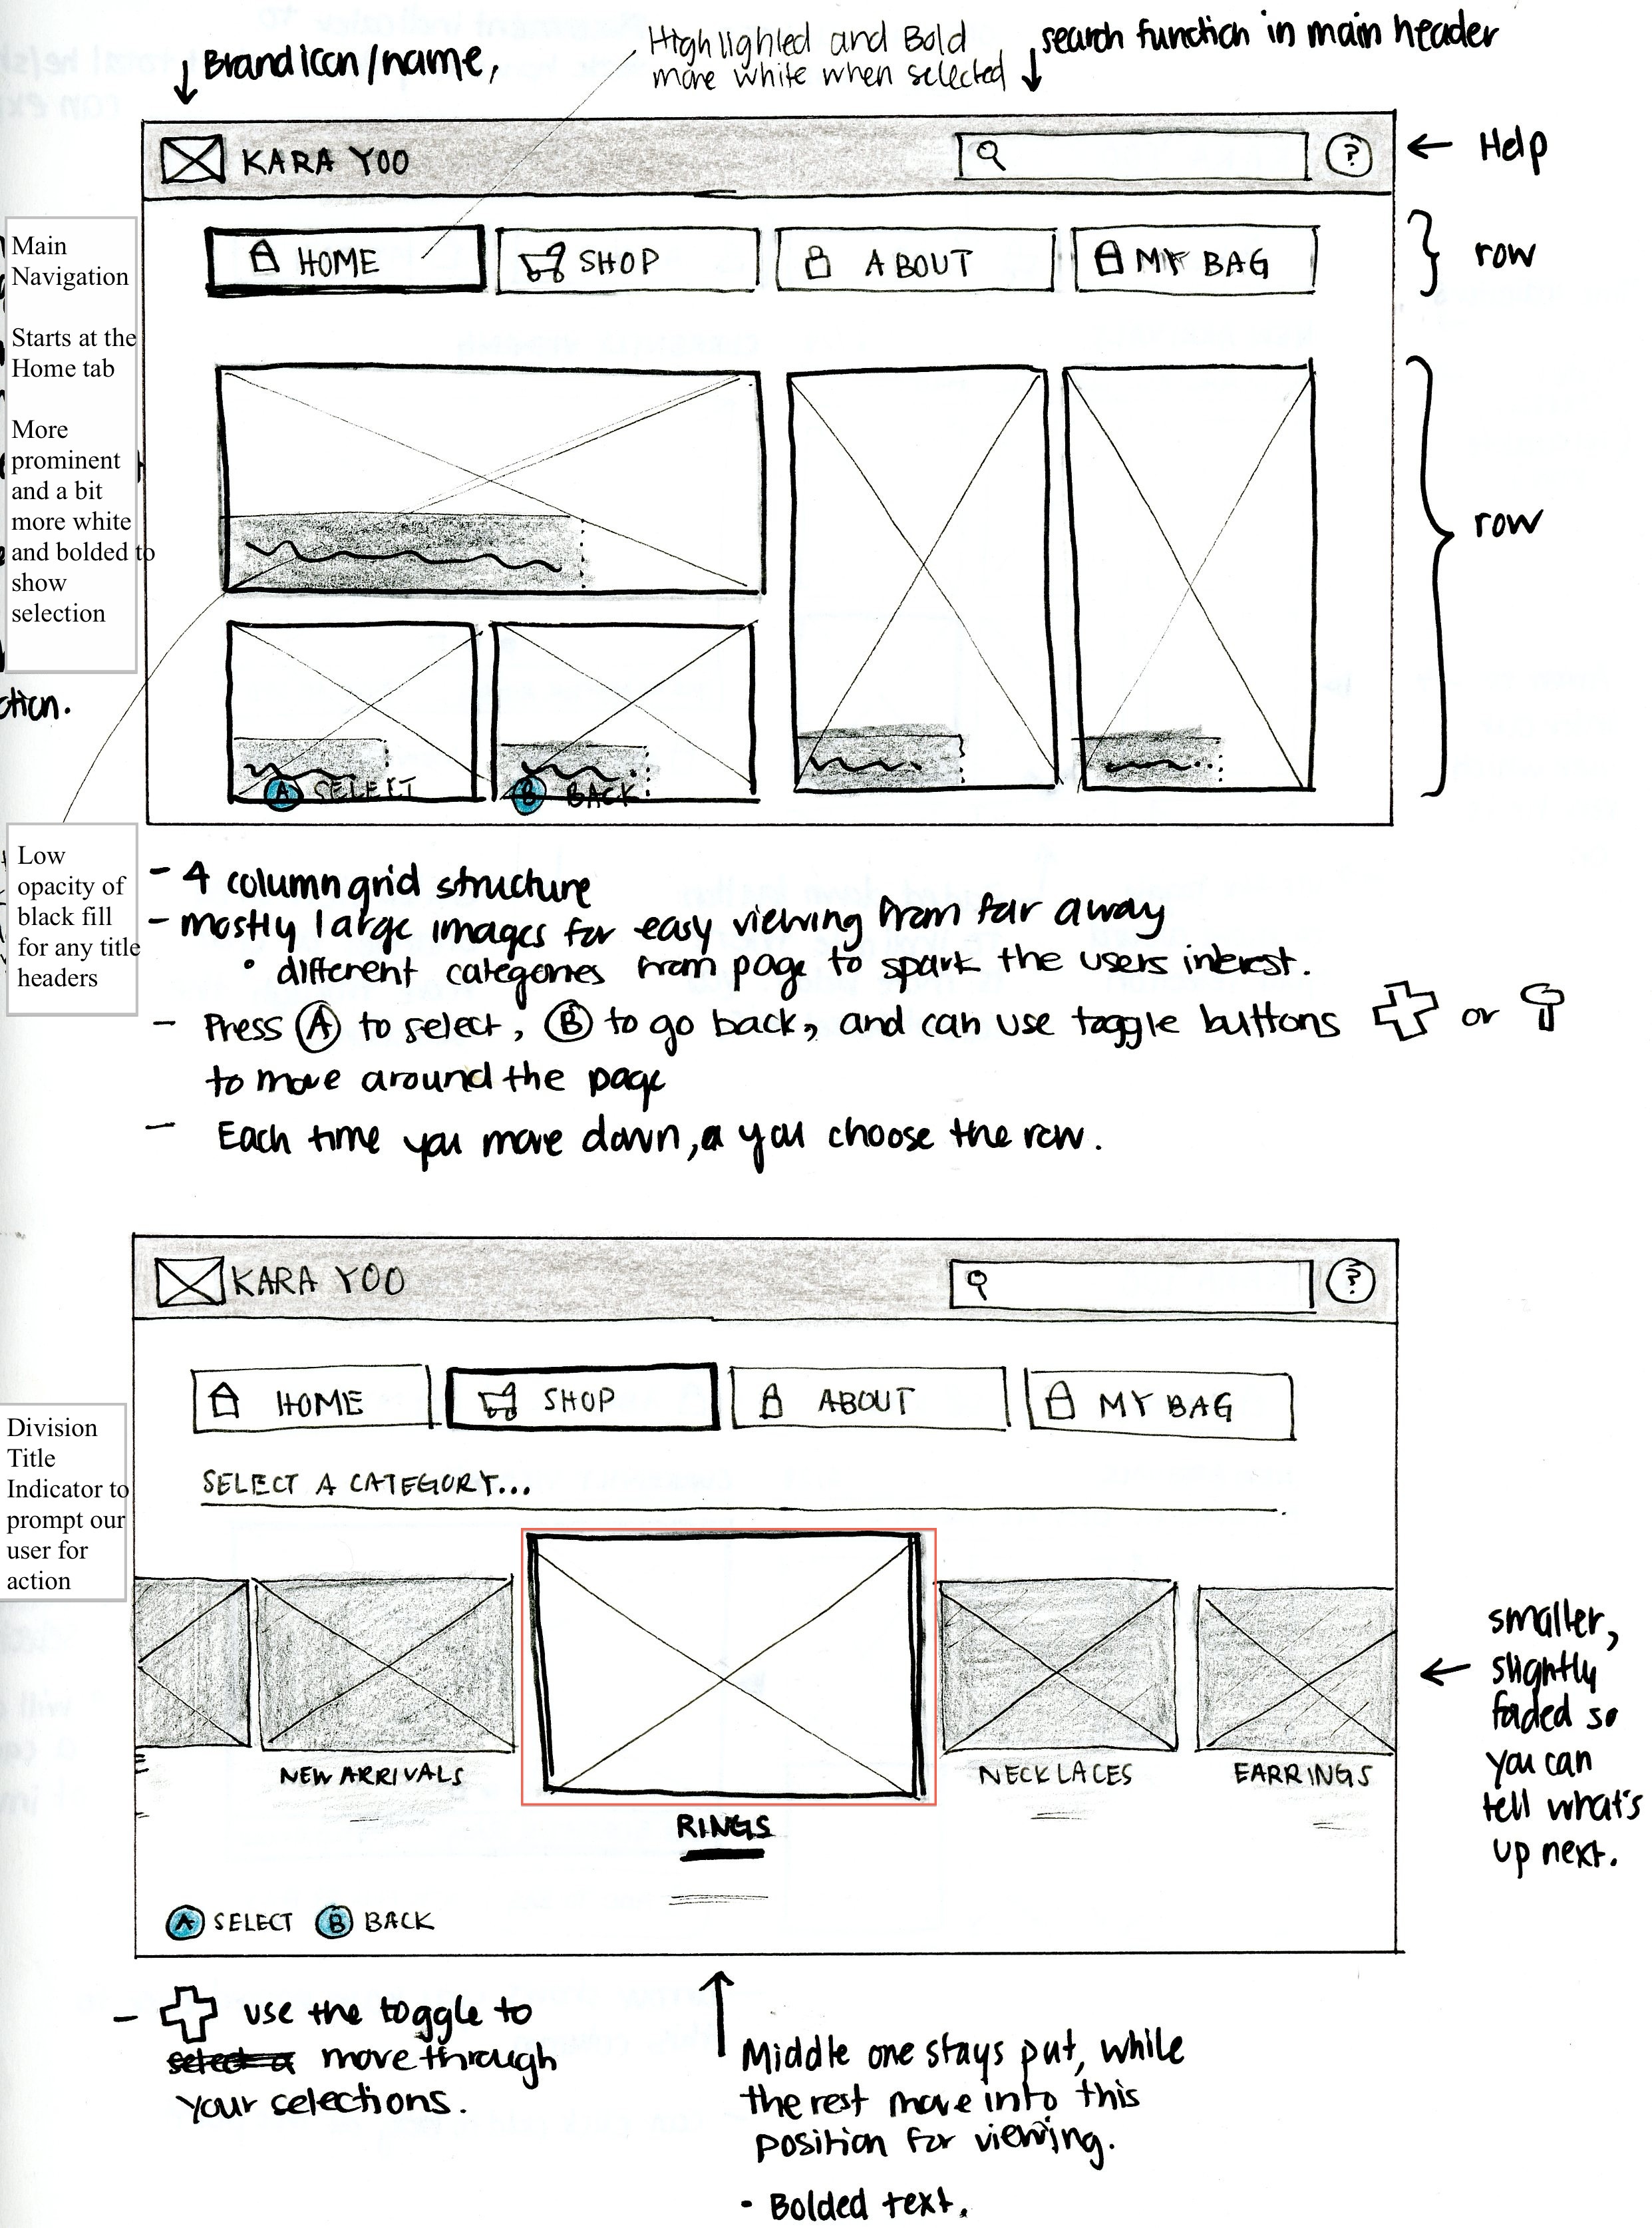 Brand Icon/name,
Highlighted and Bold
more white when selected
search function in main header
KARA YOO
?
Help
HOME
SHOP
ABOUT
MY BAG
row
Main
Navigation
Starts at the
Home tab
More
prominent
and a bit
more white
and bolded to
show
selection
ction.
row
A SELECT
B BACK
Low
opacity of
black fill
for any title
headers
- 4 column grid structure
- mostly large images for easy viewing from far away
• different categories from page to spark the users interest.
- Press A to select, B to go back, and can use toggle buttons or
to move around the page
- Each time you move down, you choose the row.
KARA YOO
?
HOME
SHOP
ABOUT
MY BAG
Division
Title
Indicator to
prompt our
user for
action
SELECT A CATEGORY...
NEW ARRIVALS
RINGS
NECKLACES
EARRINGS
smaller,
slightly
faded so
you can
tell what's
up next.
A SELECT B BACK
- use the toggle to
select a move through
your selections.
Middle one stays put, while
the rest move into this
position for viewing.
• Bolded text.